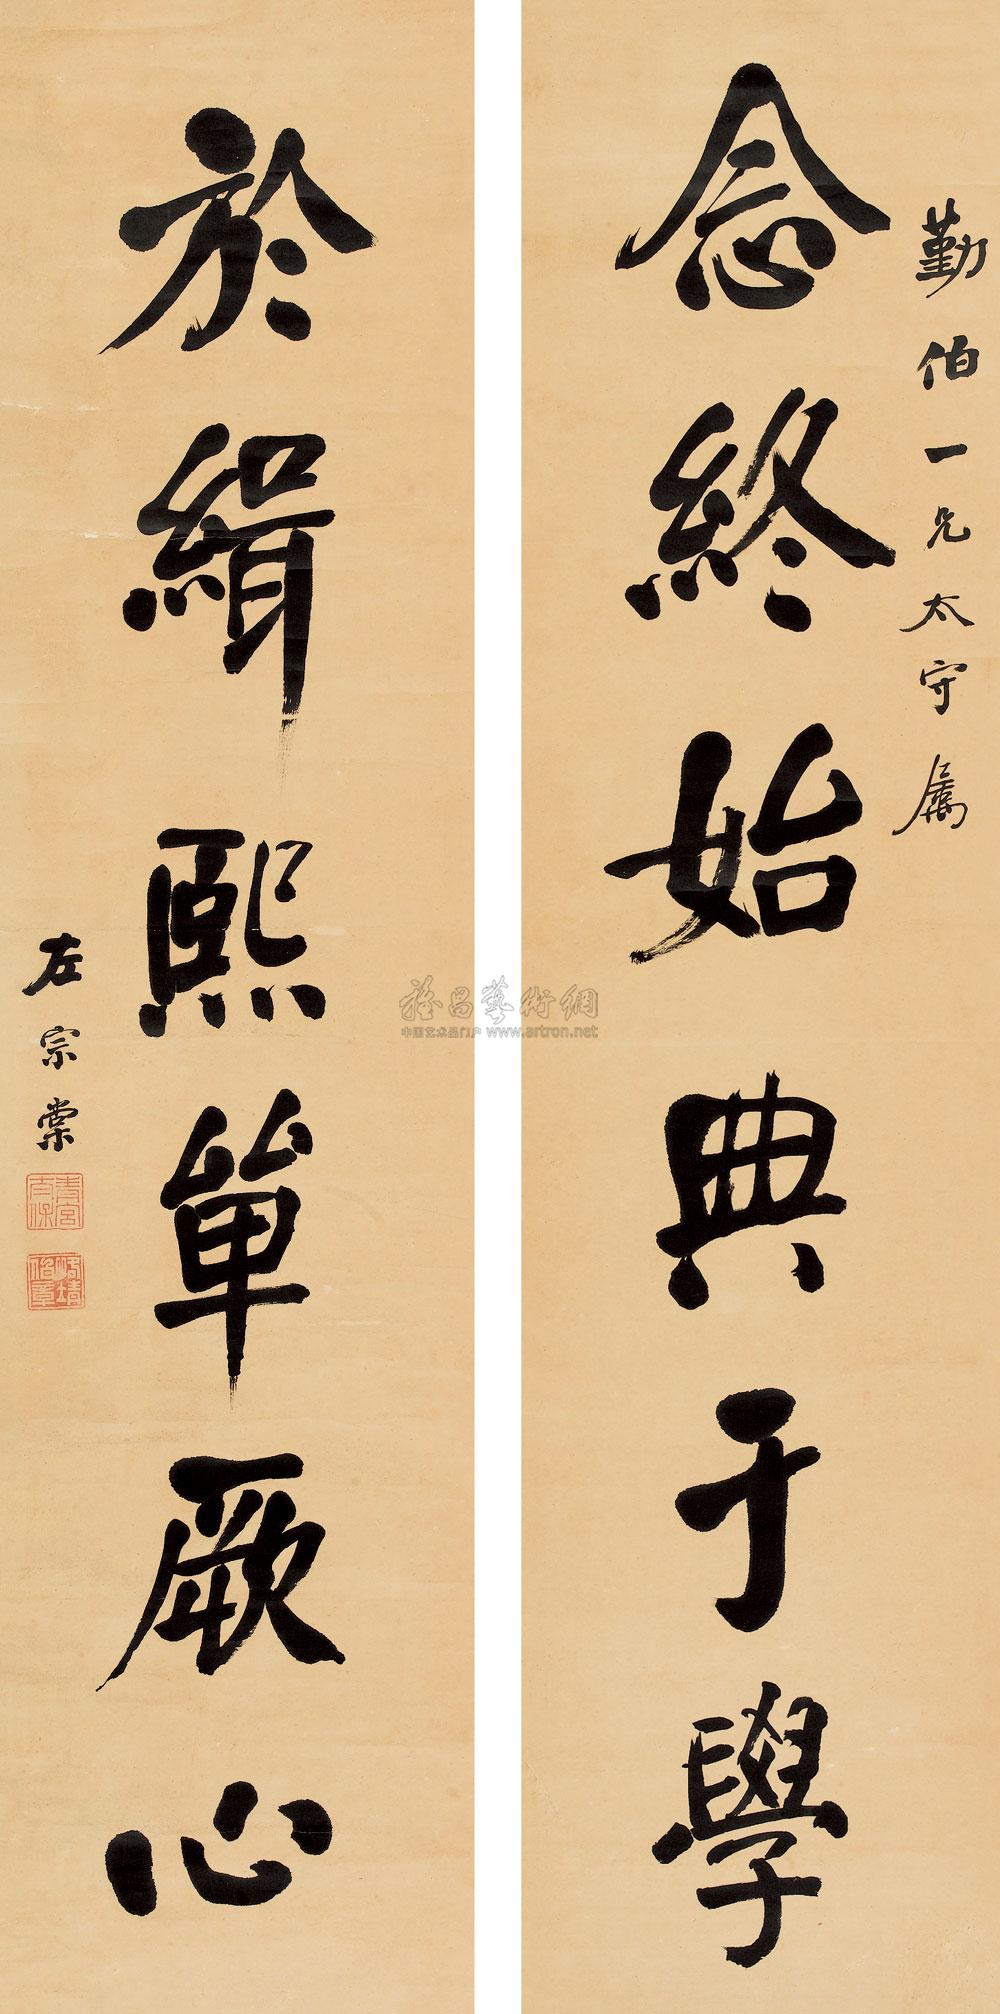 勤伯一兄太守属
念終始典于學
於緝熙單厥心
左宗棠
青宮太保
恪靖伯章
雅昌藝術網
中国艺术品门户 www.artron.net